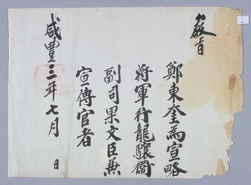 教旨
鄭東奎爲宣略
將軍行龍驤衛
副司果文臣兼
宣傳官者
咸豐三年七月　日